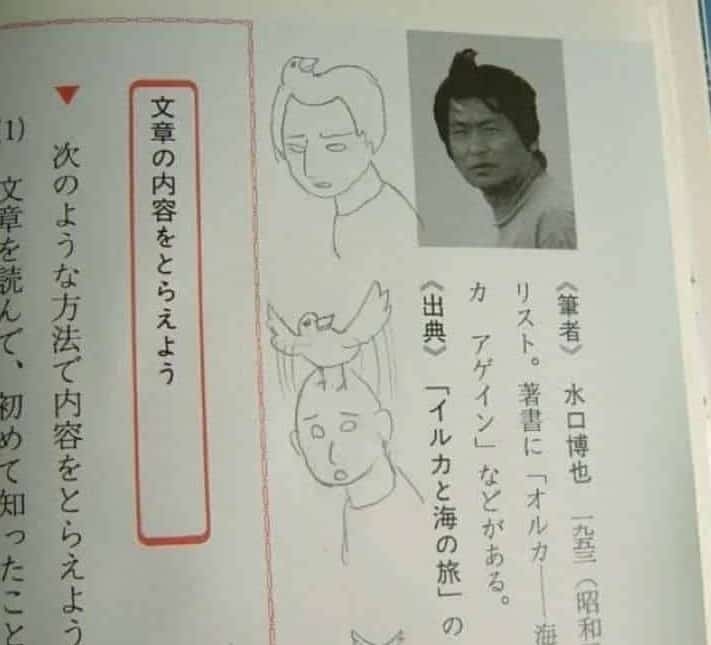 《筆者》 水口博也 一九五三(昭和
リスト。著書に「オルカ──海
カ アゲイン」などがある。
《出典》 「イルカと海の旅」の
文章の内容をとらえよう
▼ 次のような方法で内容をとらえよう
(1) 文章を読んで、初めて知ったこと